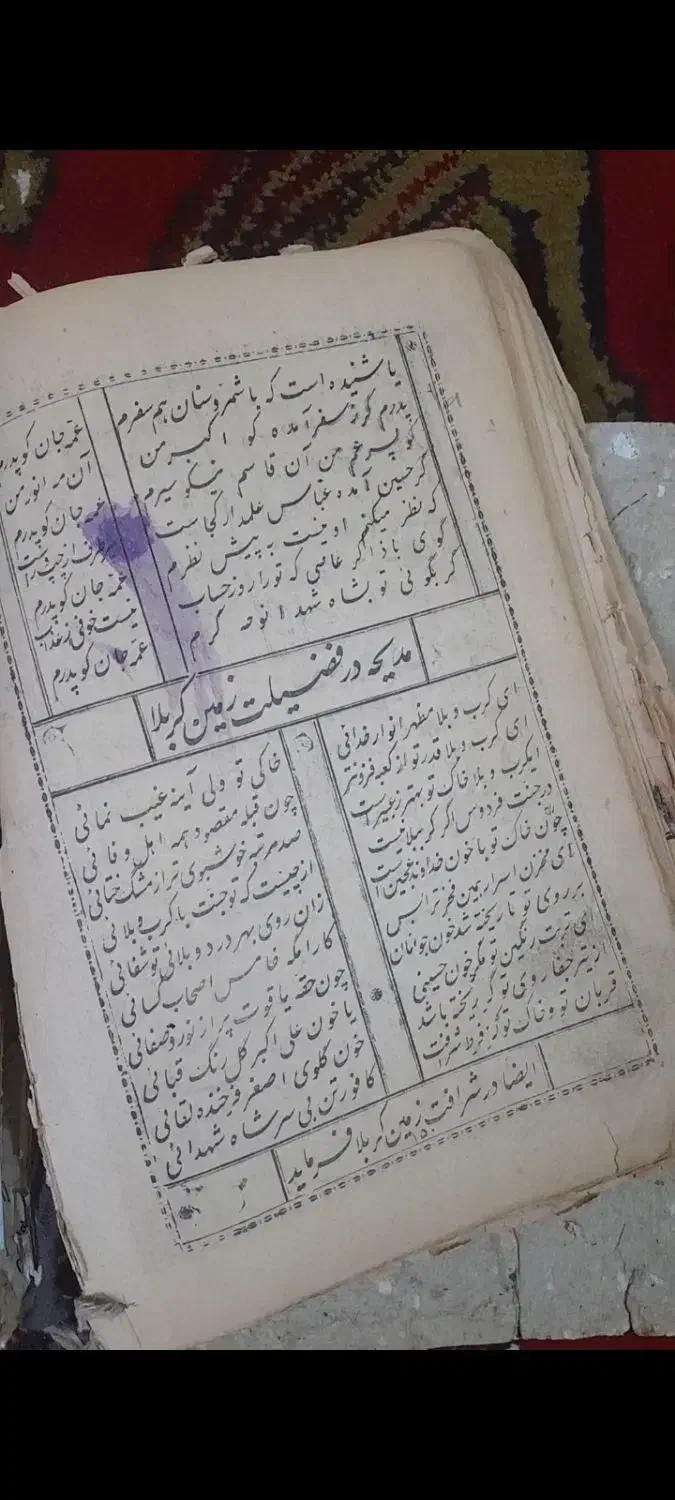 یا شنیده است که با شمر و سنان هم سفرم عمه جان کو پدرم
پدرم گر ز سفر آمده کو اکبر من آن مه انور من
کو پسر عم من آن قاسم نیکو سیرم عمه جان کو پدرم
گر حسین آمده عباس علمدار کجاست
که نظر میکنم او نیست به پیش نظرم عمه جان کو پدرم
گوری باذا اگر عاصی که تو را روز حساب نیست خوفی ز عذاب
گر بگوئی تو بشاه شهدا نوحه گرم عمه جان کو پدرم
مدیحه در فضیلت زمین کربلا
ای کرب و بلا مظهر انوار خدائی خاکی تو ولی آینه غیب نمائی
ای کرب و بلا قدر تو از کعبه فزونتر چون قبله مقصود همه اهل وفائی
ایکرب و بلا خاک تو بهتر ز عبیر است صد مرتبه خوشبوی تر از مشک ختائی
در جنت فردوس اگر کرببلا نیست از چیست که تو جنت با کرب و بلائی
چون خاک تو با خون خدا شد عجین زان روی بهر درد و بلائی تو شفائی
ای مخزن اسرار همین فخر ترا بس کارامگه خامس اصحاب کسائی
بر روی تو تا ریخته شد خون جوانان چون حقه یاقوت پر از نور و صفائی
ای تربت رنگین تو مگر خون حسینی یا خون علی اکبر گل رنگ قبائی
از تیر جفا روی تو گر ریخته باشد خون گلوی اصغر فرخنده لقائی
قربان تو و خاک تو کز فرط شرافت کافور تن بی سر شاه شهدائی
ایضا در شرافت زمین کربلا فرماید
۱۵